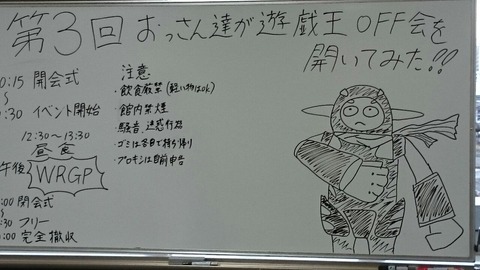 第3回 おっさん達が遊戯王OFF会を
開いてみた!!
0:15 開会式
〜
0:30 イベント開始
12:30〜13:30
昼食
午後 WRGP
:00 閉会式
〜
:30 フリー
:00 完全撤収
注意
・飲食厳禁(軽い物はok)
・館内禁煙
・騒音、迷惑行為
・ゴミは各自で持ち帰り
・プロキシは自前申告